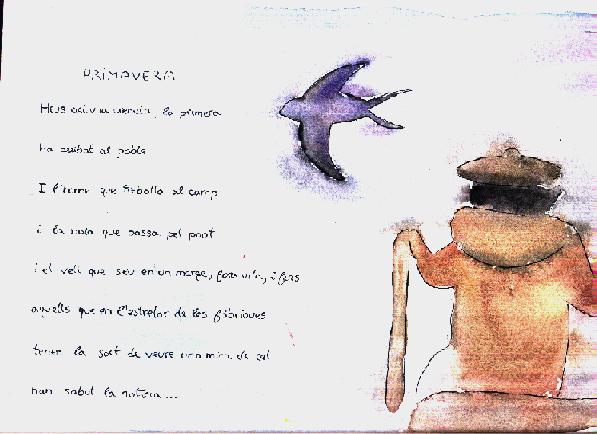 PRIMAVERA
la primera
ha arribat al poble
I l'home que treballa al camp
i la noia que passa pel pont
i el vell que seu en un marge, fora vila, i fins
aquells que en l'estretor de les fàbriques
tenen la sort de veure una mica de cel
han sabut la notícia...